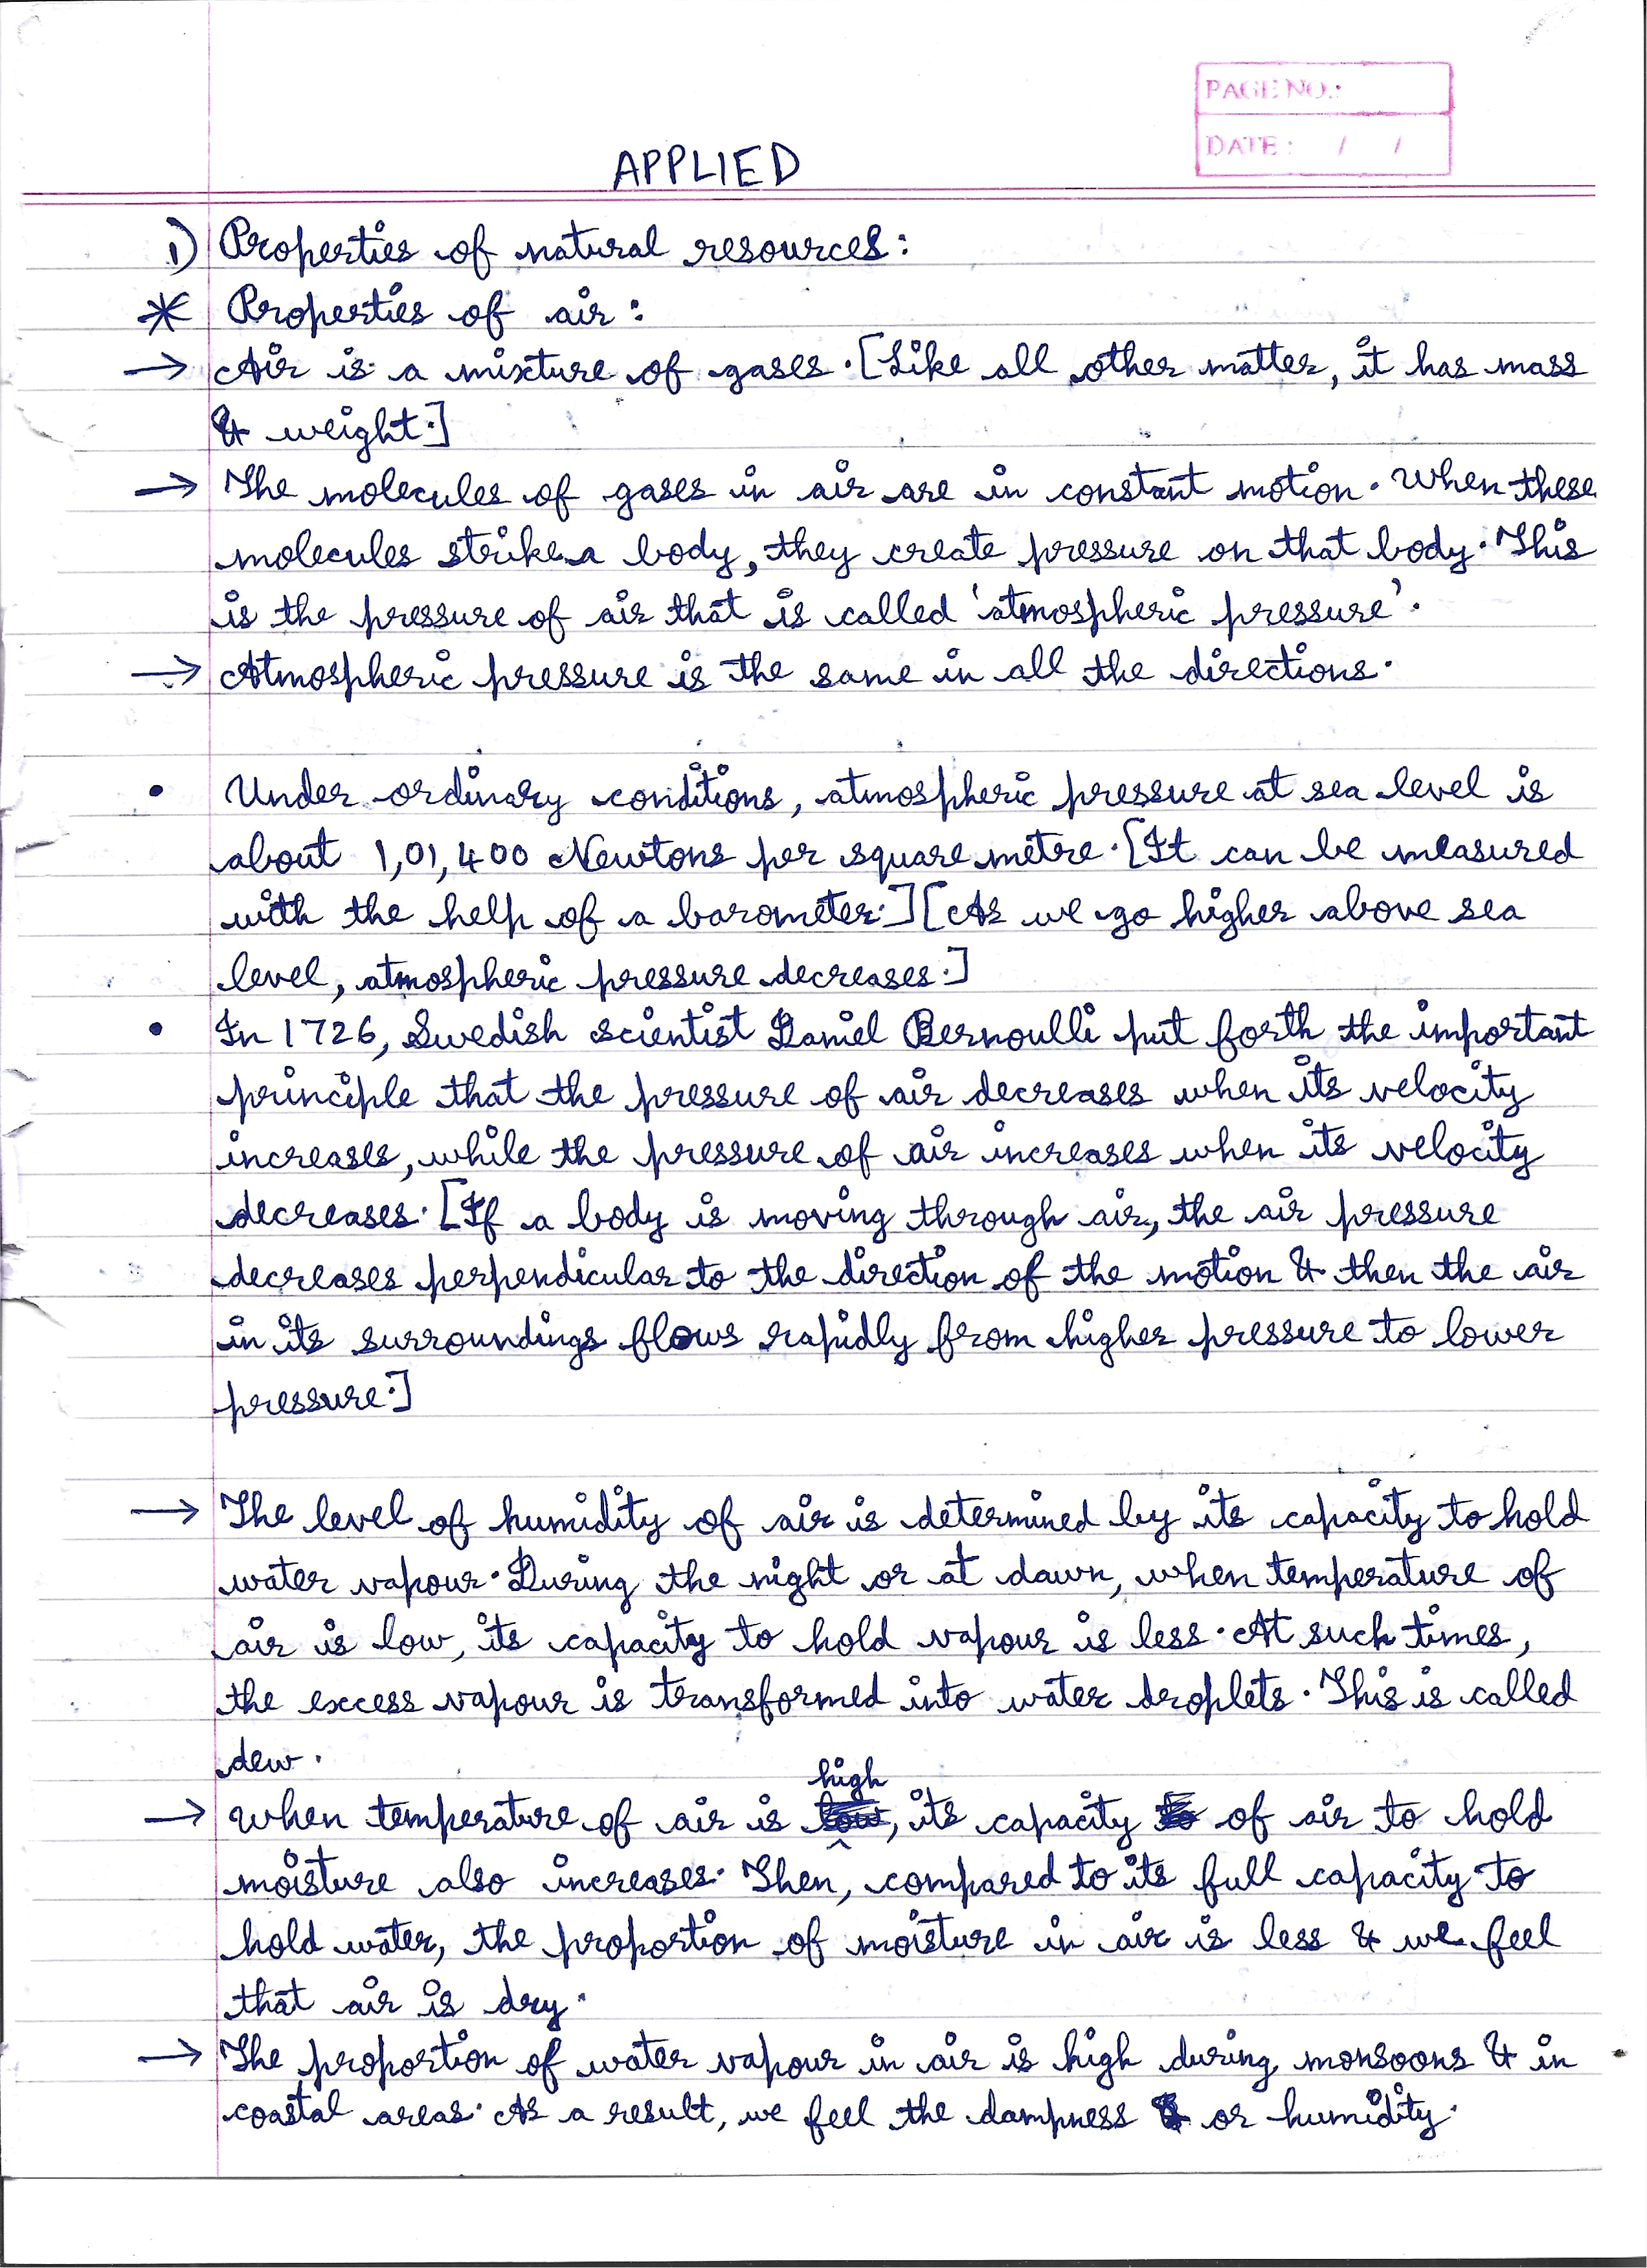 PAGE NO.:
DATE: / /
APPLIED
1) Properties of natural resources:
* Properties of air:
→ Air is a mixture of gases. [Like all other matter, it has mass
& weight.]
→ The molecules of gases in air are in constant motion. When these
molecules strike a body, they create pressure on that body. This
is the pressure of air that is called 'atmospheric pressure'.
→ Atmospheric pressure is the same in all the directions.
• Under ordinary conditions, atmospheric pressure at sea level is
about 1,01,400 Newtons per square metre. [It can be measured
with the help of a barometer.] [As we go higher above sea
level, atmospheric pressure decreases.]
• In 1726, Swedish scientist Daniel Bernoulli put forth the important
principle that the pressure of air decreases when its velocity
increases, while the pressure of air increases when its velocity
decreases. [If a body is moving through air, the air pressure
decreases perpendicular to the direction of the motion & then the air
in its surroundings flows rapidly from higher pressure to lower
pressure.]
→ The level of humidity of air is determined by its capacity to hold
water vapour. During the night or at dawn, when temperature of
air is low, its capacity to hold vapour is less. At such times,
the excess vapour is transformed into water droplets. This is called
dew.
high
→ When temperature of air is low, its capacity to of air to hold
moisture also increases. Then, compared to its full capacity to
hold water, the proportion of moisture in air is less & we feel
that air is dry.
→ The proportion of water vapour in air is high during monsoons & in
coastal areas. As a result, we feel the dampness & or humidity.